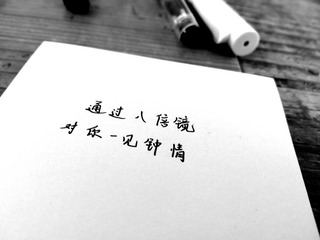 通过八倍镜
对你一见钟情